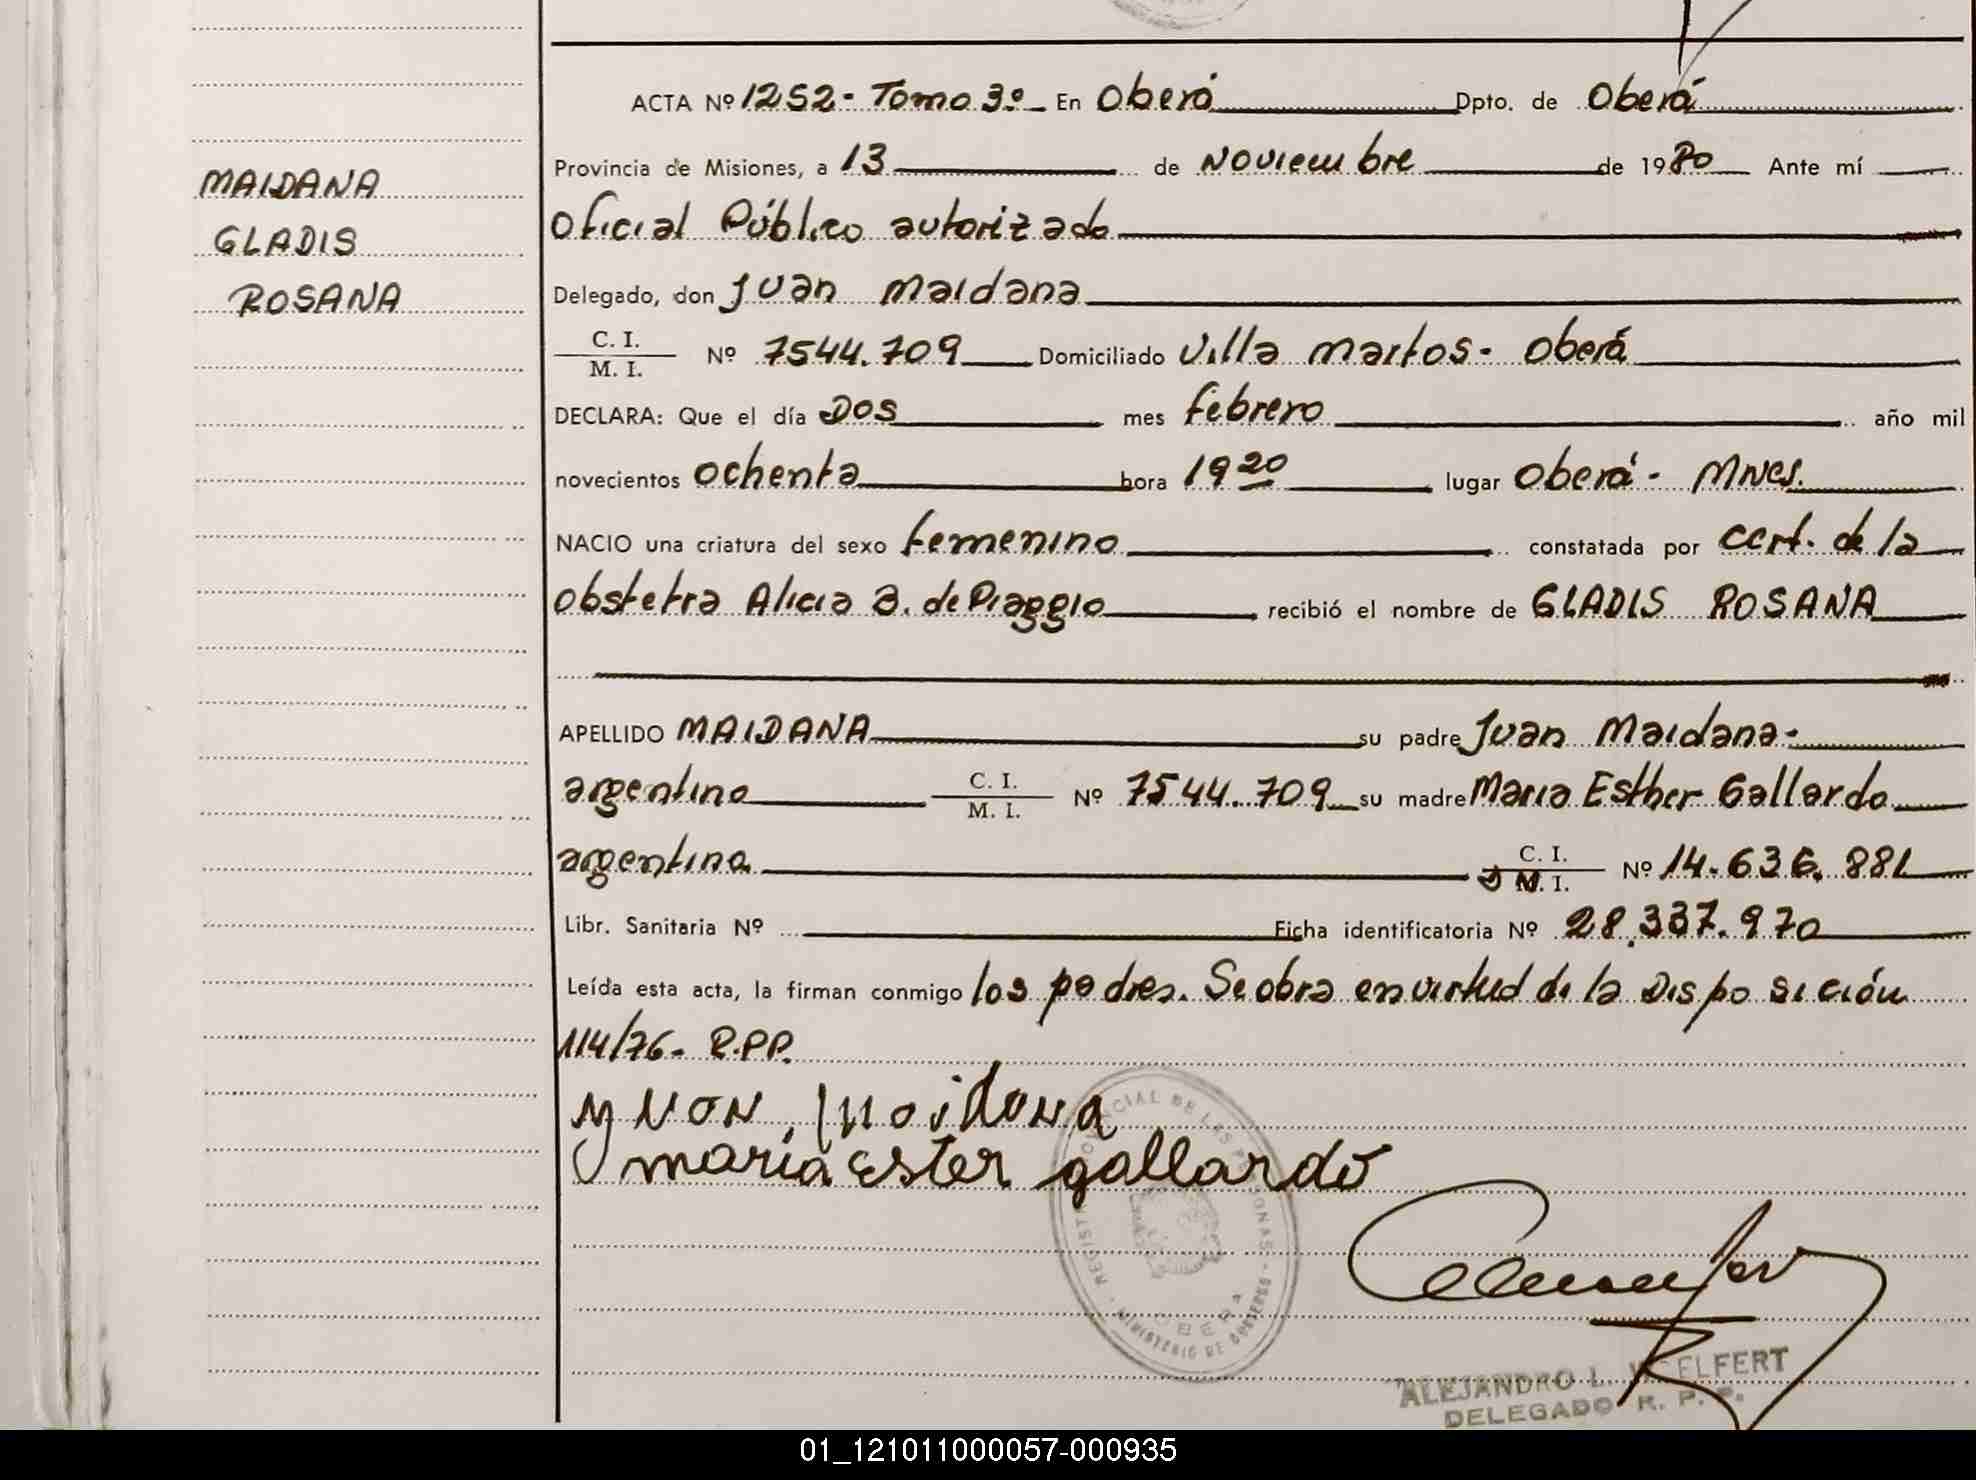 MAIDANA
GLADIS
ROSANA
ACTA Nº 1252- Tomo 3º En Oberá Dpto. de Oberá
Provincia de Misiones, a 13 de Noviembre de 1980 Ante mí
Oficial Público autorizado
Delegado, don Juan Maidana
C. I.
M. I. Nº 7544.709 Domiciliado Villa Martos- Oberá
DECLARA: Que el día Dos mes febrero año mil
novecientos ochenta hora 19 20 lugar Oberá- Mnes.
NACIO una criatura del sexo femenino constatada por cert. de la
obstetra Alicia B. de Piaggio recibió el nombre de GLADIS ROSANA
APELLIDO MAIDANA su padre Juan Maidana-
argentino C. I. M. I. Nº 7544.709 su madre Maria Esther Gallardo
argentina C. I. M. I. Nº 14.636.881
Libr. Sanitaria Nº Ficha identificatoria Nº 28.337.970
Leída esta acta, la firman conmigo los padres. Se obra en virtud de la Disposición
114/76- R.P.P.
maría Ester gallardo
REGISTRO PROVINCIAL DE LAS PERSONAS
MINISTERIO DE GOBIERNO
OBERA
ALEJANDRO L.
DELEGADO R. P. P.
01_121011000057-000935